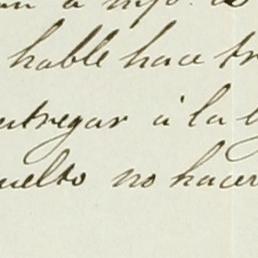 a mjo. de
hable hace tr
ntregar á la e
uelto no hacer